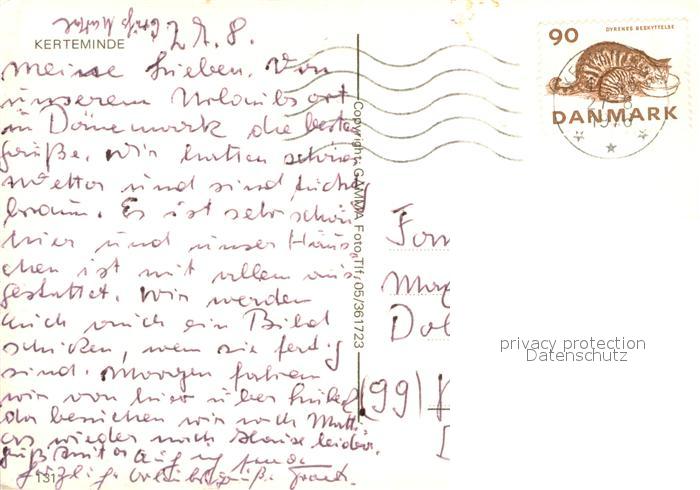 27.8.
KERTEMINDE
Meine Lieben. Von
unserem Urlaubsort
in Dänemark die besten
Grüße. Wir hatten schönes
Wetter und sind
braun. Es ist sehr schön
hier und unser Häus-
chen ist mit allem aus-
gestattet. Wir werden
Euch auch ein Bild
schicken, wenn sie fertig
sind. Morgen fahren
wir von hier über
da besuchen wir noch
wieder nach Hause leider.
131
Copyright: GAMMA Foto, Tlf. 05/361723
90
DYRENES BESKYTTELSE
DANMARK
(99)
privacy protection
Datenschutz